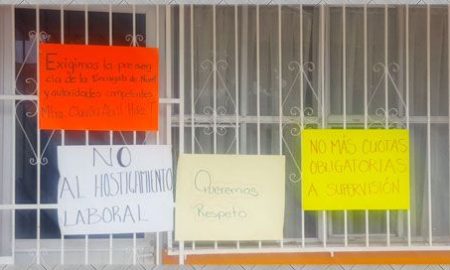 "Exigimos la presen
cia de la Encargada de Nivel
y autoridades competentes
Mtra.
NO
AL HOSTIGAMIENTO
LABORAL
Queremos
Respeto
NO MÁS CUOTAS
OBLIGATORIAS
A SUPERVISIÓN